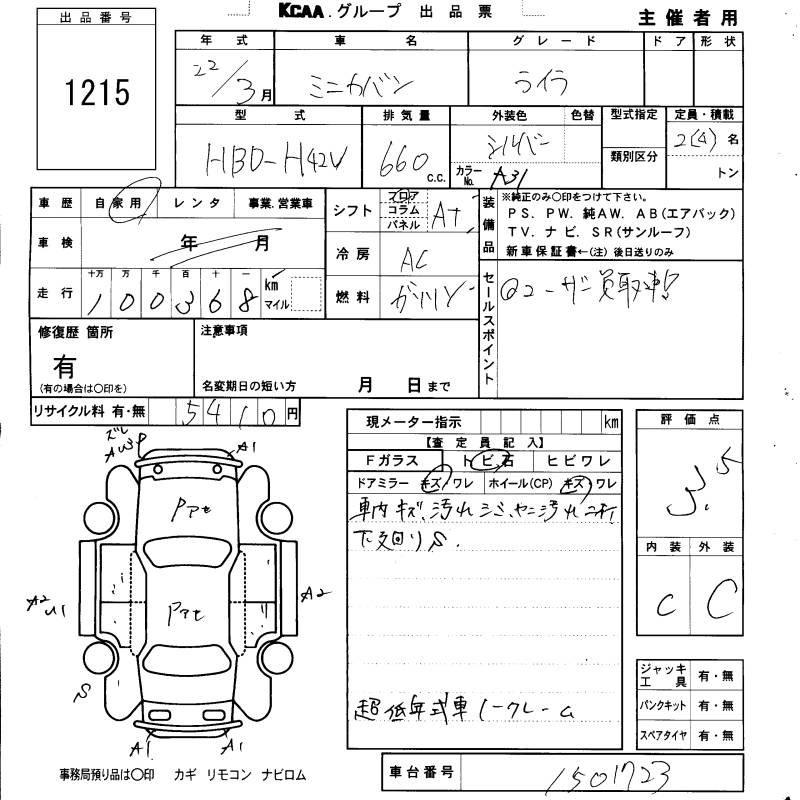 KCAA.グループ 出品票
主催者用
出品番号
1215
年式 車名 グレード ドア 形状
22/3月 ミニカバン ライラ
型式 排気量 外装色 色替 型式指定 定員・積載
HBD-H42V 660 c.c. シルバー カラーNo. A31 類別区分 2(4)名
トン
車歴 自家用 レンタ 事業.営業車
シフト フロア コラム パネル AT
装備品 ※純正のみ○印をつけて下さい。
PS. PW. 純AW. AB(エアバック)
TV. ナビ. SR(サンルーフ)
新車保証書←(注) 後日送りのみ
車検 年 月
冷房 AC
走行 十万 万 千 百 十 一 km マイル
100368
燃料 ガソリン
セールスポイント
@ユーザー買取車!
修復歴 箇所
有
(有の場合は○印を)
注意事項
名変期日の短い方 月 日まで
リサイクル料 有・無 5410円
現メーター指示 km
【査定員記入】
Fガラス トビ石 ヒビワレ
ドアミラー キズ/ワレ ホイール(CP) キズ/ワレ
車内キズ、汚れシミ、ヤニ汚れ
下廻りS.
超低年式車ノークレーム
評価点
3.5
内装 外装
C C
ジャッキ工具 有・無
パンクキット 有・無
スペアタイヤ 有・無
ズレ
AW3P
A1
Pアセ
Pアセ
A2
U1
A2
S
A1 A1
事務局預り品は○印 カギ リモコン ナビロム
車台番号 1501723